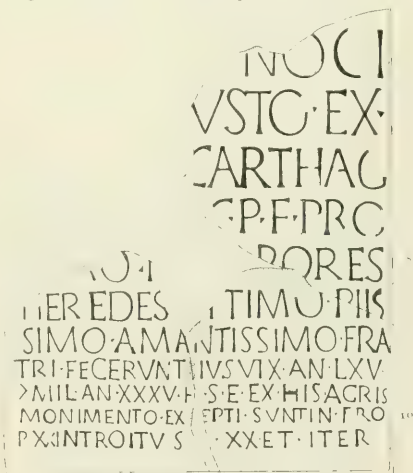 NOCI
VSTO·EX·
CARTHAG
P·F·PRO
RORES
HEREDES TIMO·PIIS
SIMO·AMANTISSIMO·FRA
TRI·FECERVNT IVSVIX·AN·LXV·
>MIL·AN·XXXV·H·S·E·EX·HISAGRIS
MONIMENTO·EX EPTI·SVNTIN·FRO
P·X·INTROITVS XX·ET·ITER